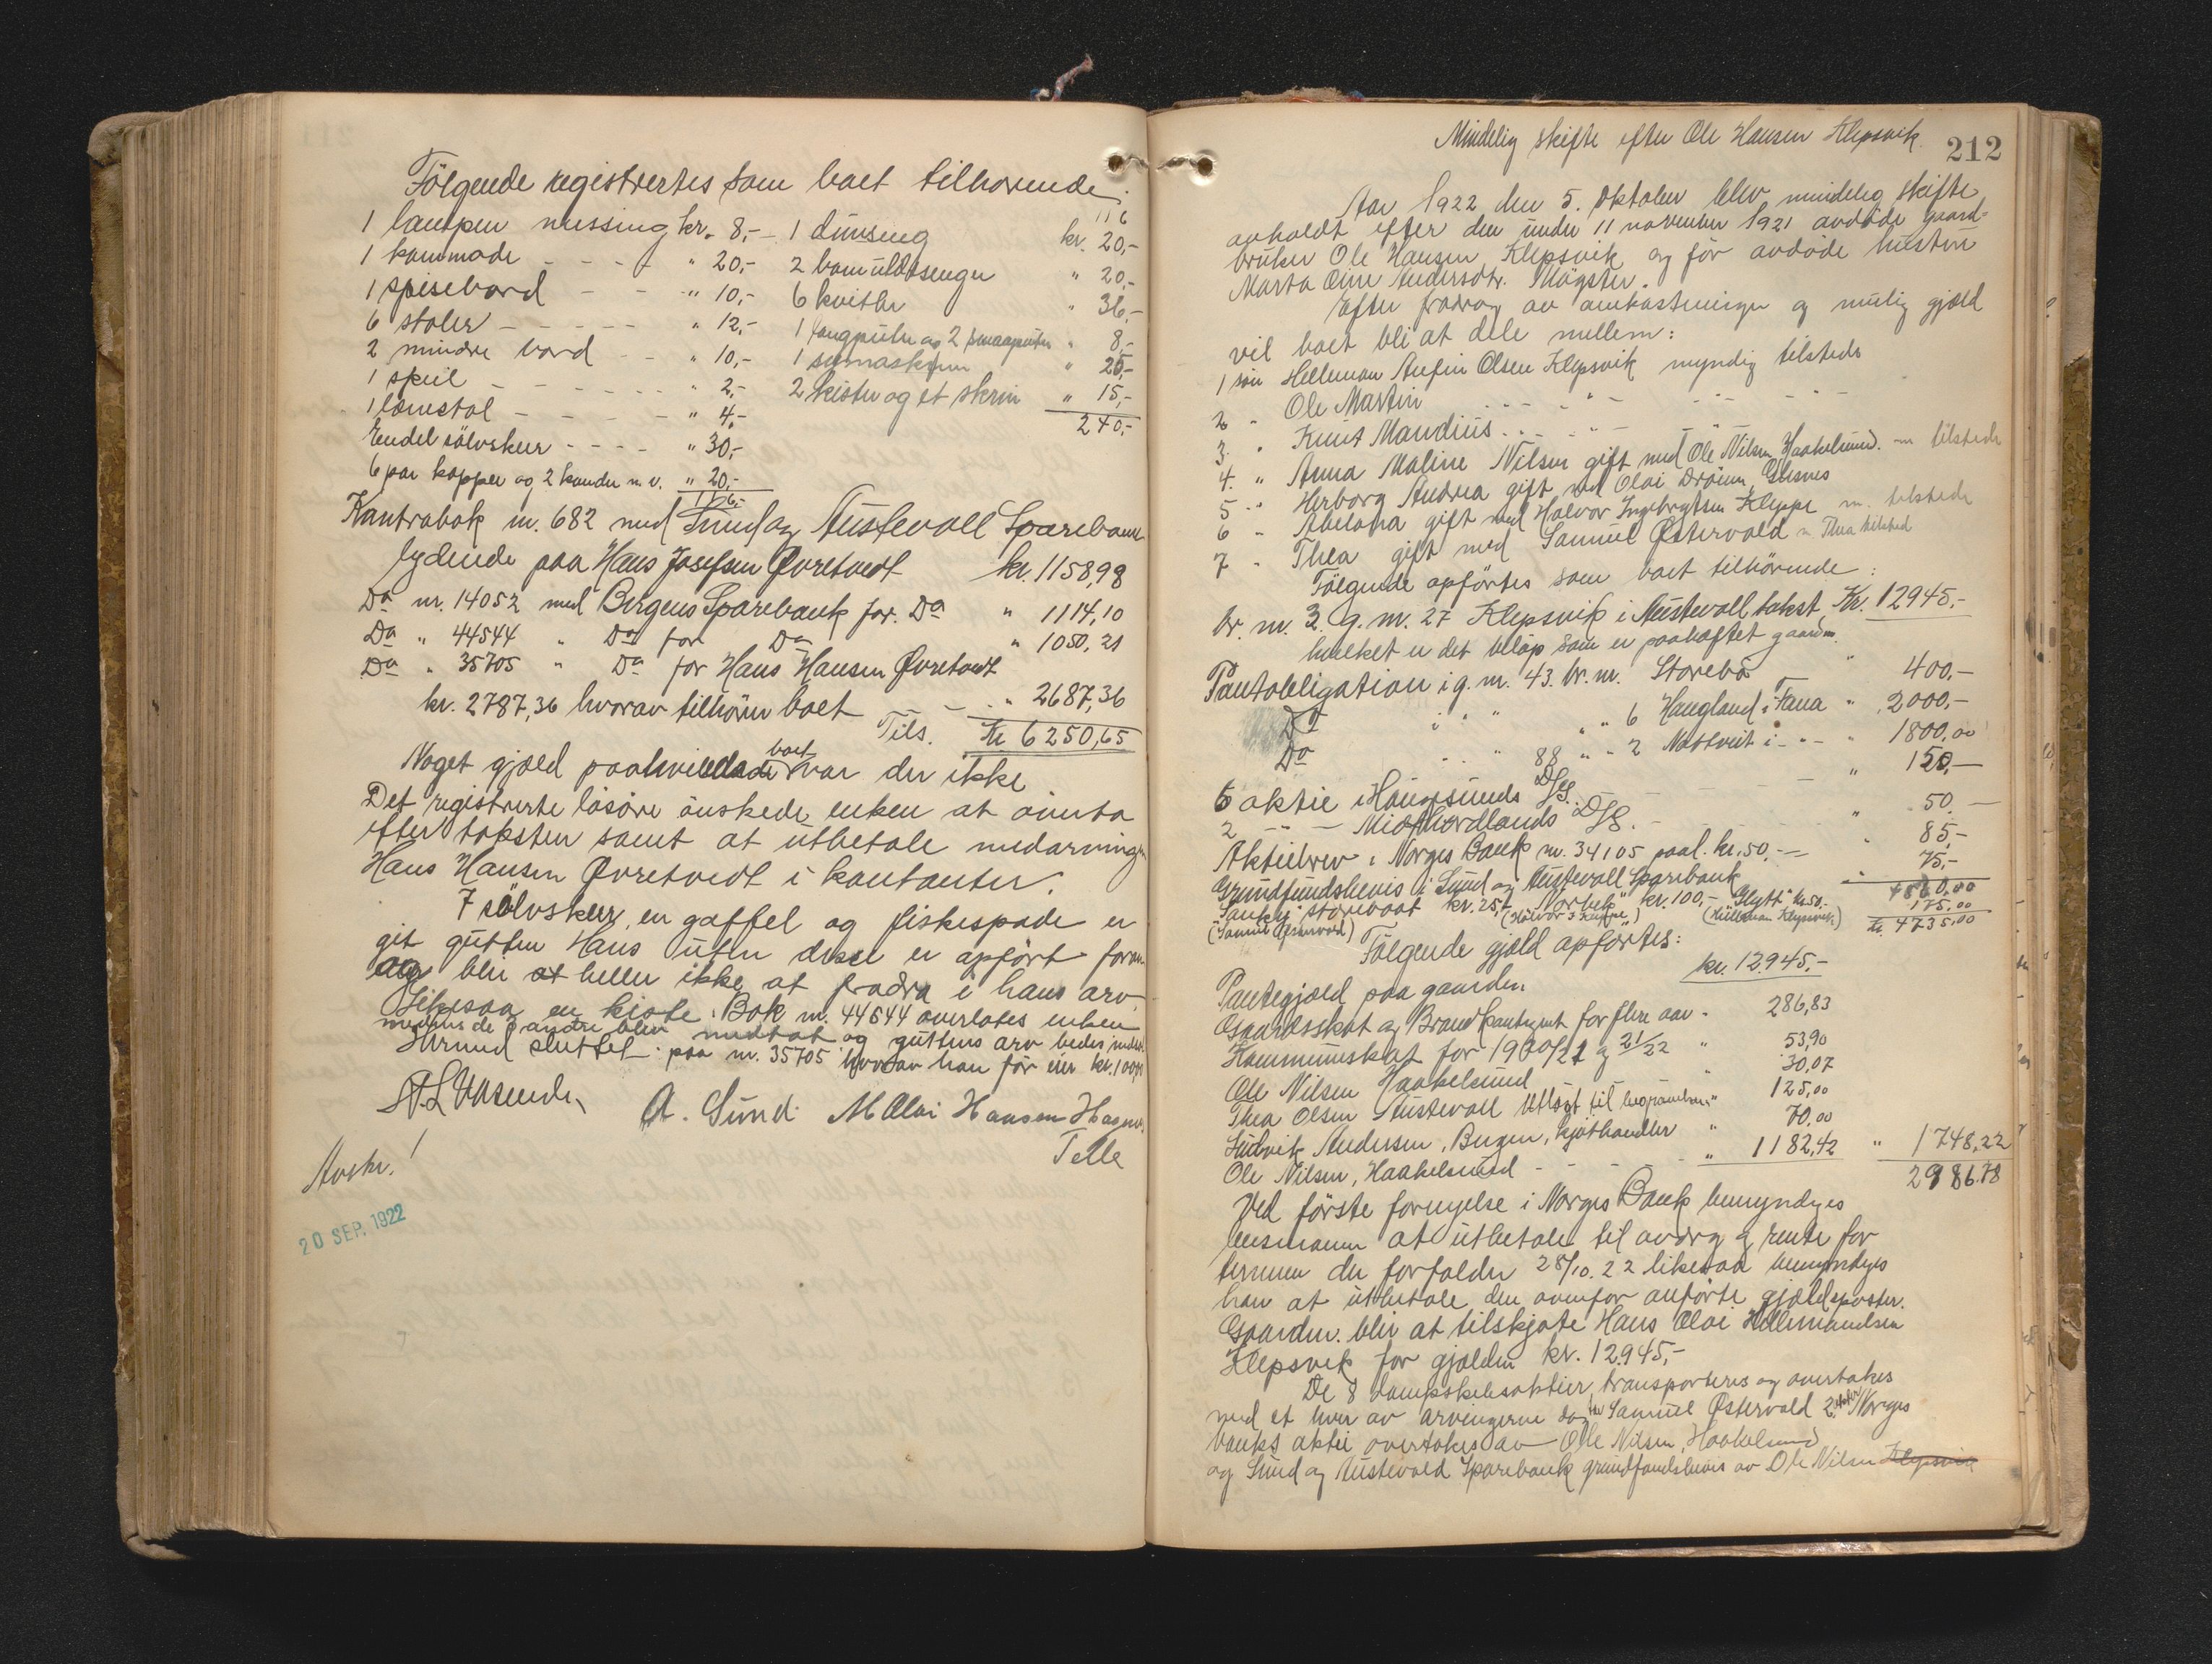 Følgende registrertes som boet tilhørende:
116
1 lampen messing kr. 8,- 1 dunseng kr. 20,-
1 kommode - - - " 20,- 2 bomuldssenger " 20,-
1 spisebord - - " 10,- 6 kvitler " 36,-
6 stoler - - - - - " 12,- 1 langpute og 2 smaaputer " 8,-
2 mindre bord - - " 10,- 1 symaskin " 25,-
1 speil - - - - - - " 2,- 2 kister og et skrin " 15,-
1 lænestol - - - - - " 4,- 240,-
Endel sølvskeer - - - - " 30,-
6 par kopper og 2 kander m. v. " 20,-
116,-
Kontrabok nr. 682 med Sund og Austevoll Sparebank
lydende paa Hans Josefsen Øvretvedt kr. 1158,98
Do nr. 14052 med Bergens Sparebank for Do " 1114,10
Do " 44544 " Do for Do " 1050,21
Do " 35705 " Do for Hans Hansen Øvretvedt
kr. 2787,36 hvorav tilhører boet - - " 2687,36
Tils. kr. 6250,65
Noget gjæld paahvilende boet var der ikke
Det registrerte løsøre ønskede enken at overta
efter taksten samt at utbetale medarvingen
Hans Hansen Øvretvedt i kontanter.
7 sølvskeer, en gaffel og fiskespade er
git gutten Hans uten disse er opført foran
og blir at heller ikke at fradra i hans arv
Likesaa en kiste. Bok nr. 44544 overlates enken
medens de andre blir mottat og guttens arv bedes indsat
Hermed sluttet. paa nr. 35705 hvorav han før eier kr. 100,00
A. Sund. M Olai Hansen Hagen
Telle
Avskr.!
20 SEP. 1922
Mindelig skifte efter Ole Hansen Klepsvik.
212
Aar 1922 den 5. Oktober blev mindelig skifte
avholdt efter den under 11 november 1921 avdøde gaard-
bruker Ole Hansen Klepsvik og før avdøde hustru
Marta Oline Andersdtr. Møgster.
Efter fradrag av omkostninger og mulig gjæld
vil boet bli at dele mellem:
1 søn Helleman Anfin Olsen Klepsvik myndig tilstede
2 " Ole Martin - - - " - - " - - " -
3. " Knut Mandius - - - " - - " -
4. " Anna Maline Nilsen gift med Ole Nilsen Haakelsund. m tilstede
5 " Herborg Andrea gift med Olai Drönen, Glesnes
6 " Abelona gift med Halvor Ingebrigtsen Kleppe m. tilstede
7 " Thea gift med Samuel Østervold m Thea tilsted
Følgende opførtes som boet tilhørende:
Br. nr. 3 g. nr. 27 Klepsvik i Austevoll takst Kr. 12945,-
hvilket er det beløp som er paaheftet gaarden.
Pantobligation i g. nr. 43. br. nr. Storebø " 400,-
Do i " " " " 6 Haugland i Fana " 2000,-
Do " " 88 " " 2 Nattveit i - " - " 1800,00
6 aktie i Haugesunds D/S. - - - " 150,-
2 - " - Midthordlands D/S. - - - " 50,-
Aktiebrev i Norges Bank nr. 34105 paal. kr. 50,- " 85,-
Grundfondsbevis i Sund og Austevoll Sparebank " 75,-
4560,00
storebaat kr. 25,- kr. 100,- kr. 50,- 175,00
(Samuel Østervold) (Halvor I Kleppe) (Helleman Klepsvik) kr. 4735,00
Følgende gjæld opførtes:
Pantegjæld paa gaarden kr. 12945,-
Gaardsskat og Brandkontingent for flere aar " 286,83
Kommuneskat for 1920/21 og 21/22 " 53,90
Ole Nilsen Haakelsund " 30,07
Thea Olsen Austevoll Utlagt til begravelsen " 125,00
Ludvik Andersen, Bergen, kjøthandler " 70,00
Ole Nilsen, Haakelsund - - - - " 1182,42 " 1748,22
2986.78
Ved første fornyelse i Norges Bank bemyndiges
lensmannen at utbetale til avdrag og rente for
terminen der forfalder 28/10.22 likesaa bemyndiges
han at utbetale den ovenfor anførte gjældsposter.
Gaarden blir at tilskjøte Hans Olai Hellemandsen
Klepsvik for gjælden kr. 12945,-
De 8 dampskibsaktier transporteres og overtakes
med et hver av arvingerne dog Samuel Østervold 2 aktier Norges
banks aktie overtakes av Ole Nilsen, Haakelsund
og Sund og Austevold Sparebank grundfondsbevis av Ole Nilsen Klepsvik